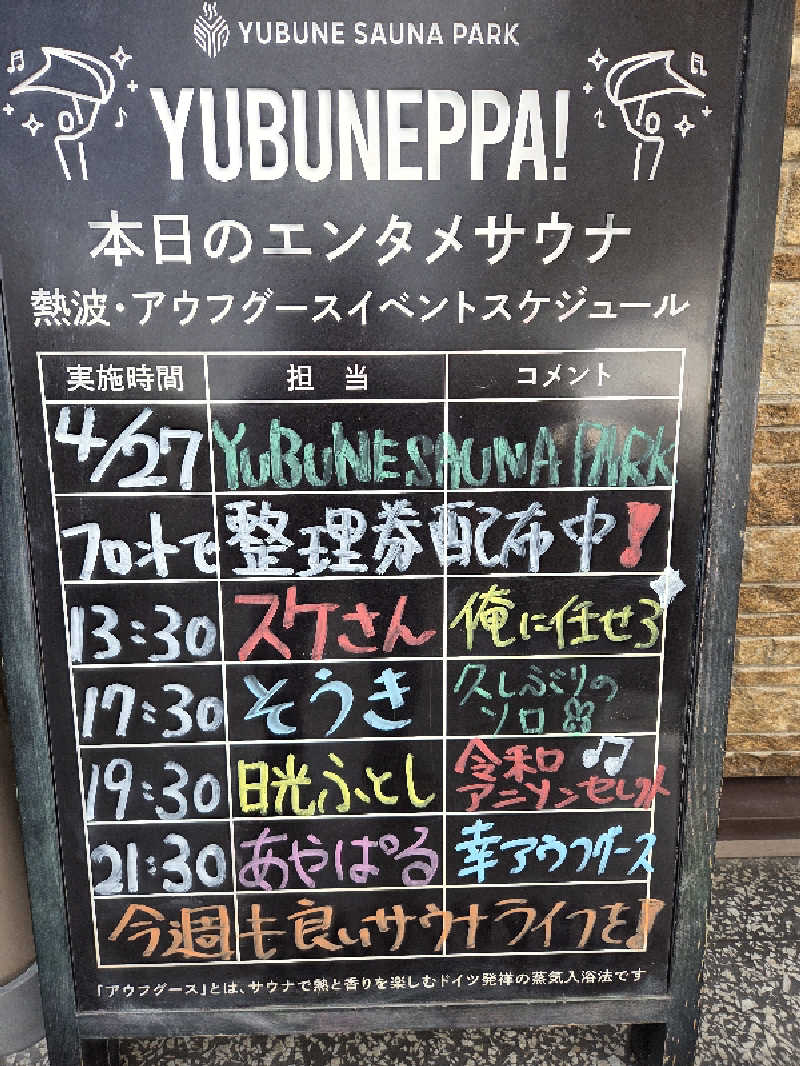 YUBUNE SAUNA PARK
YUBUNEPPA!
本日のエンタメサウナ
熱波・アウフグースイベントスケジュール
実施時間 担当 コメント
4/27 YUBUNE SAUNA PARK
フロントで 整理券配布中!
13:30 スケさん 俺に任せろ
17:30 そうき 久しぶりの
ソロ
19:30 日光ふとし 令和
アニソンセレクト
21:30 あやぱる 幸アウフグース
今週も良いサウナライフを!
「アウフグース」とは、サウナで熱と香りを楽しむドイツ発祥の蒸気入浴法です